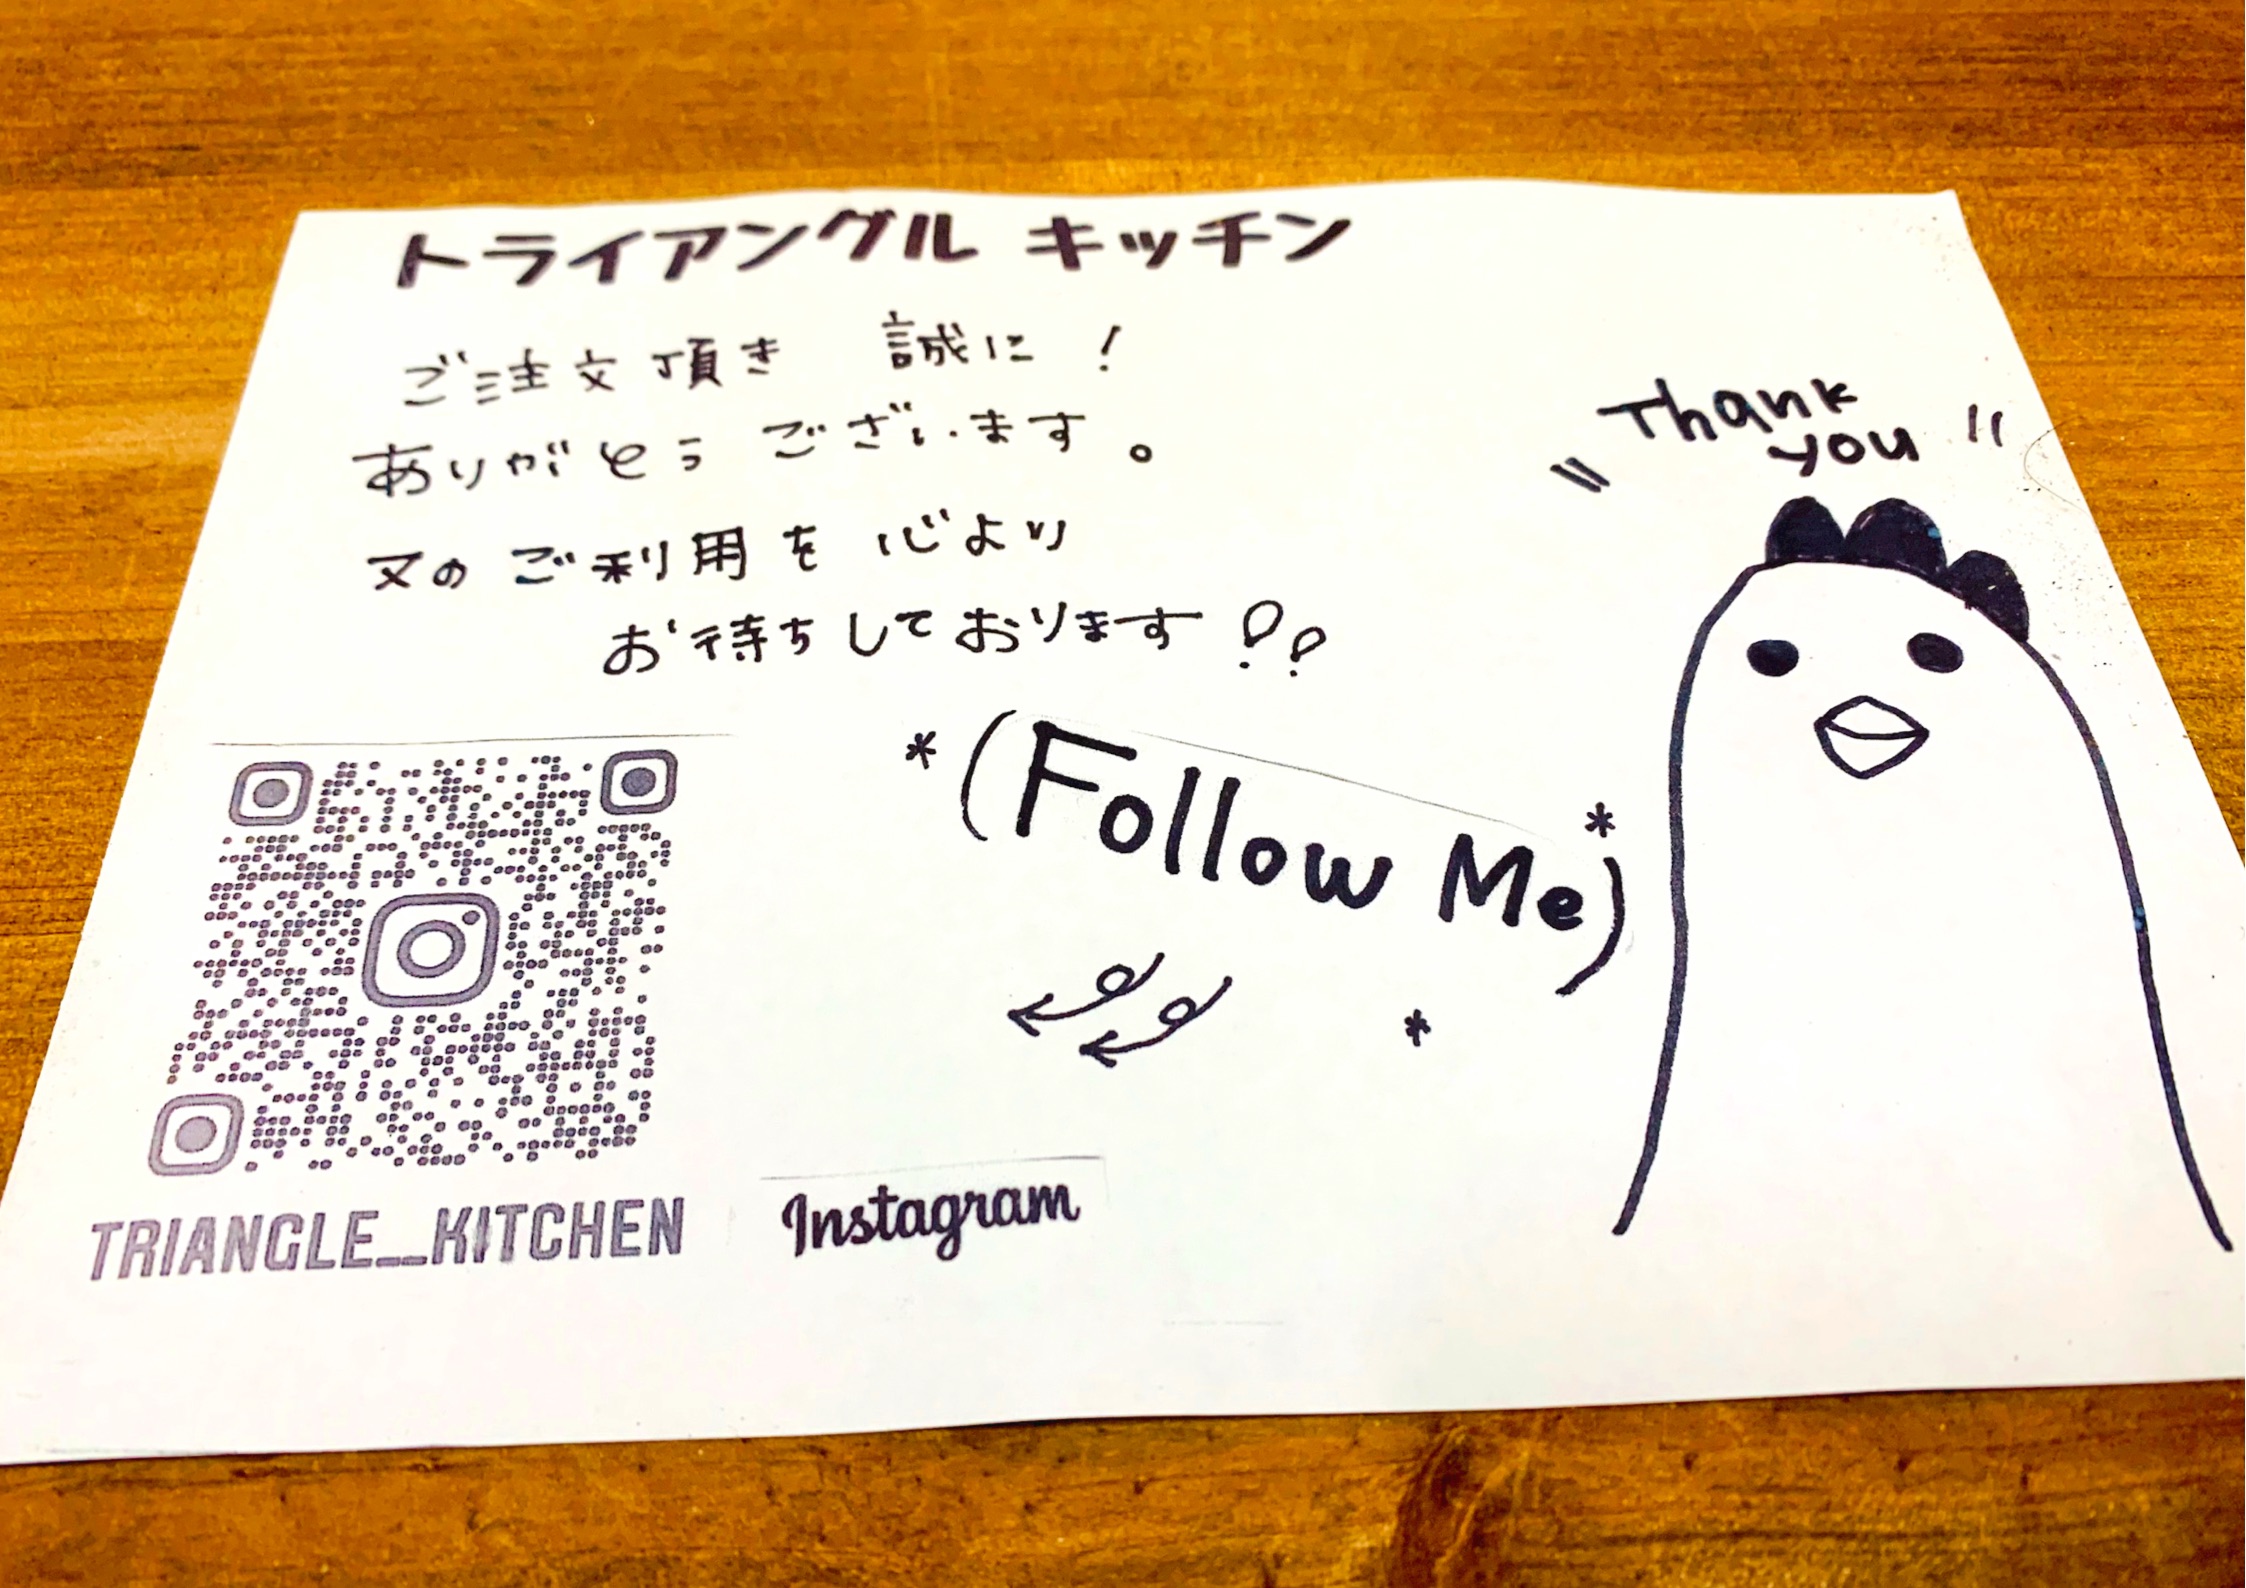 トライアングル キッチン
ご注文頂き 誠に!
ありがとうございます。
又のご利用を心より
お待ちしております!!
Thank
you
(Follow Me)
TRIANGLE__KITCHEN
Instagram